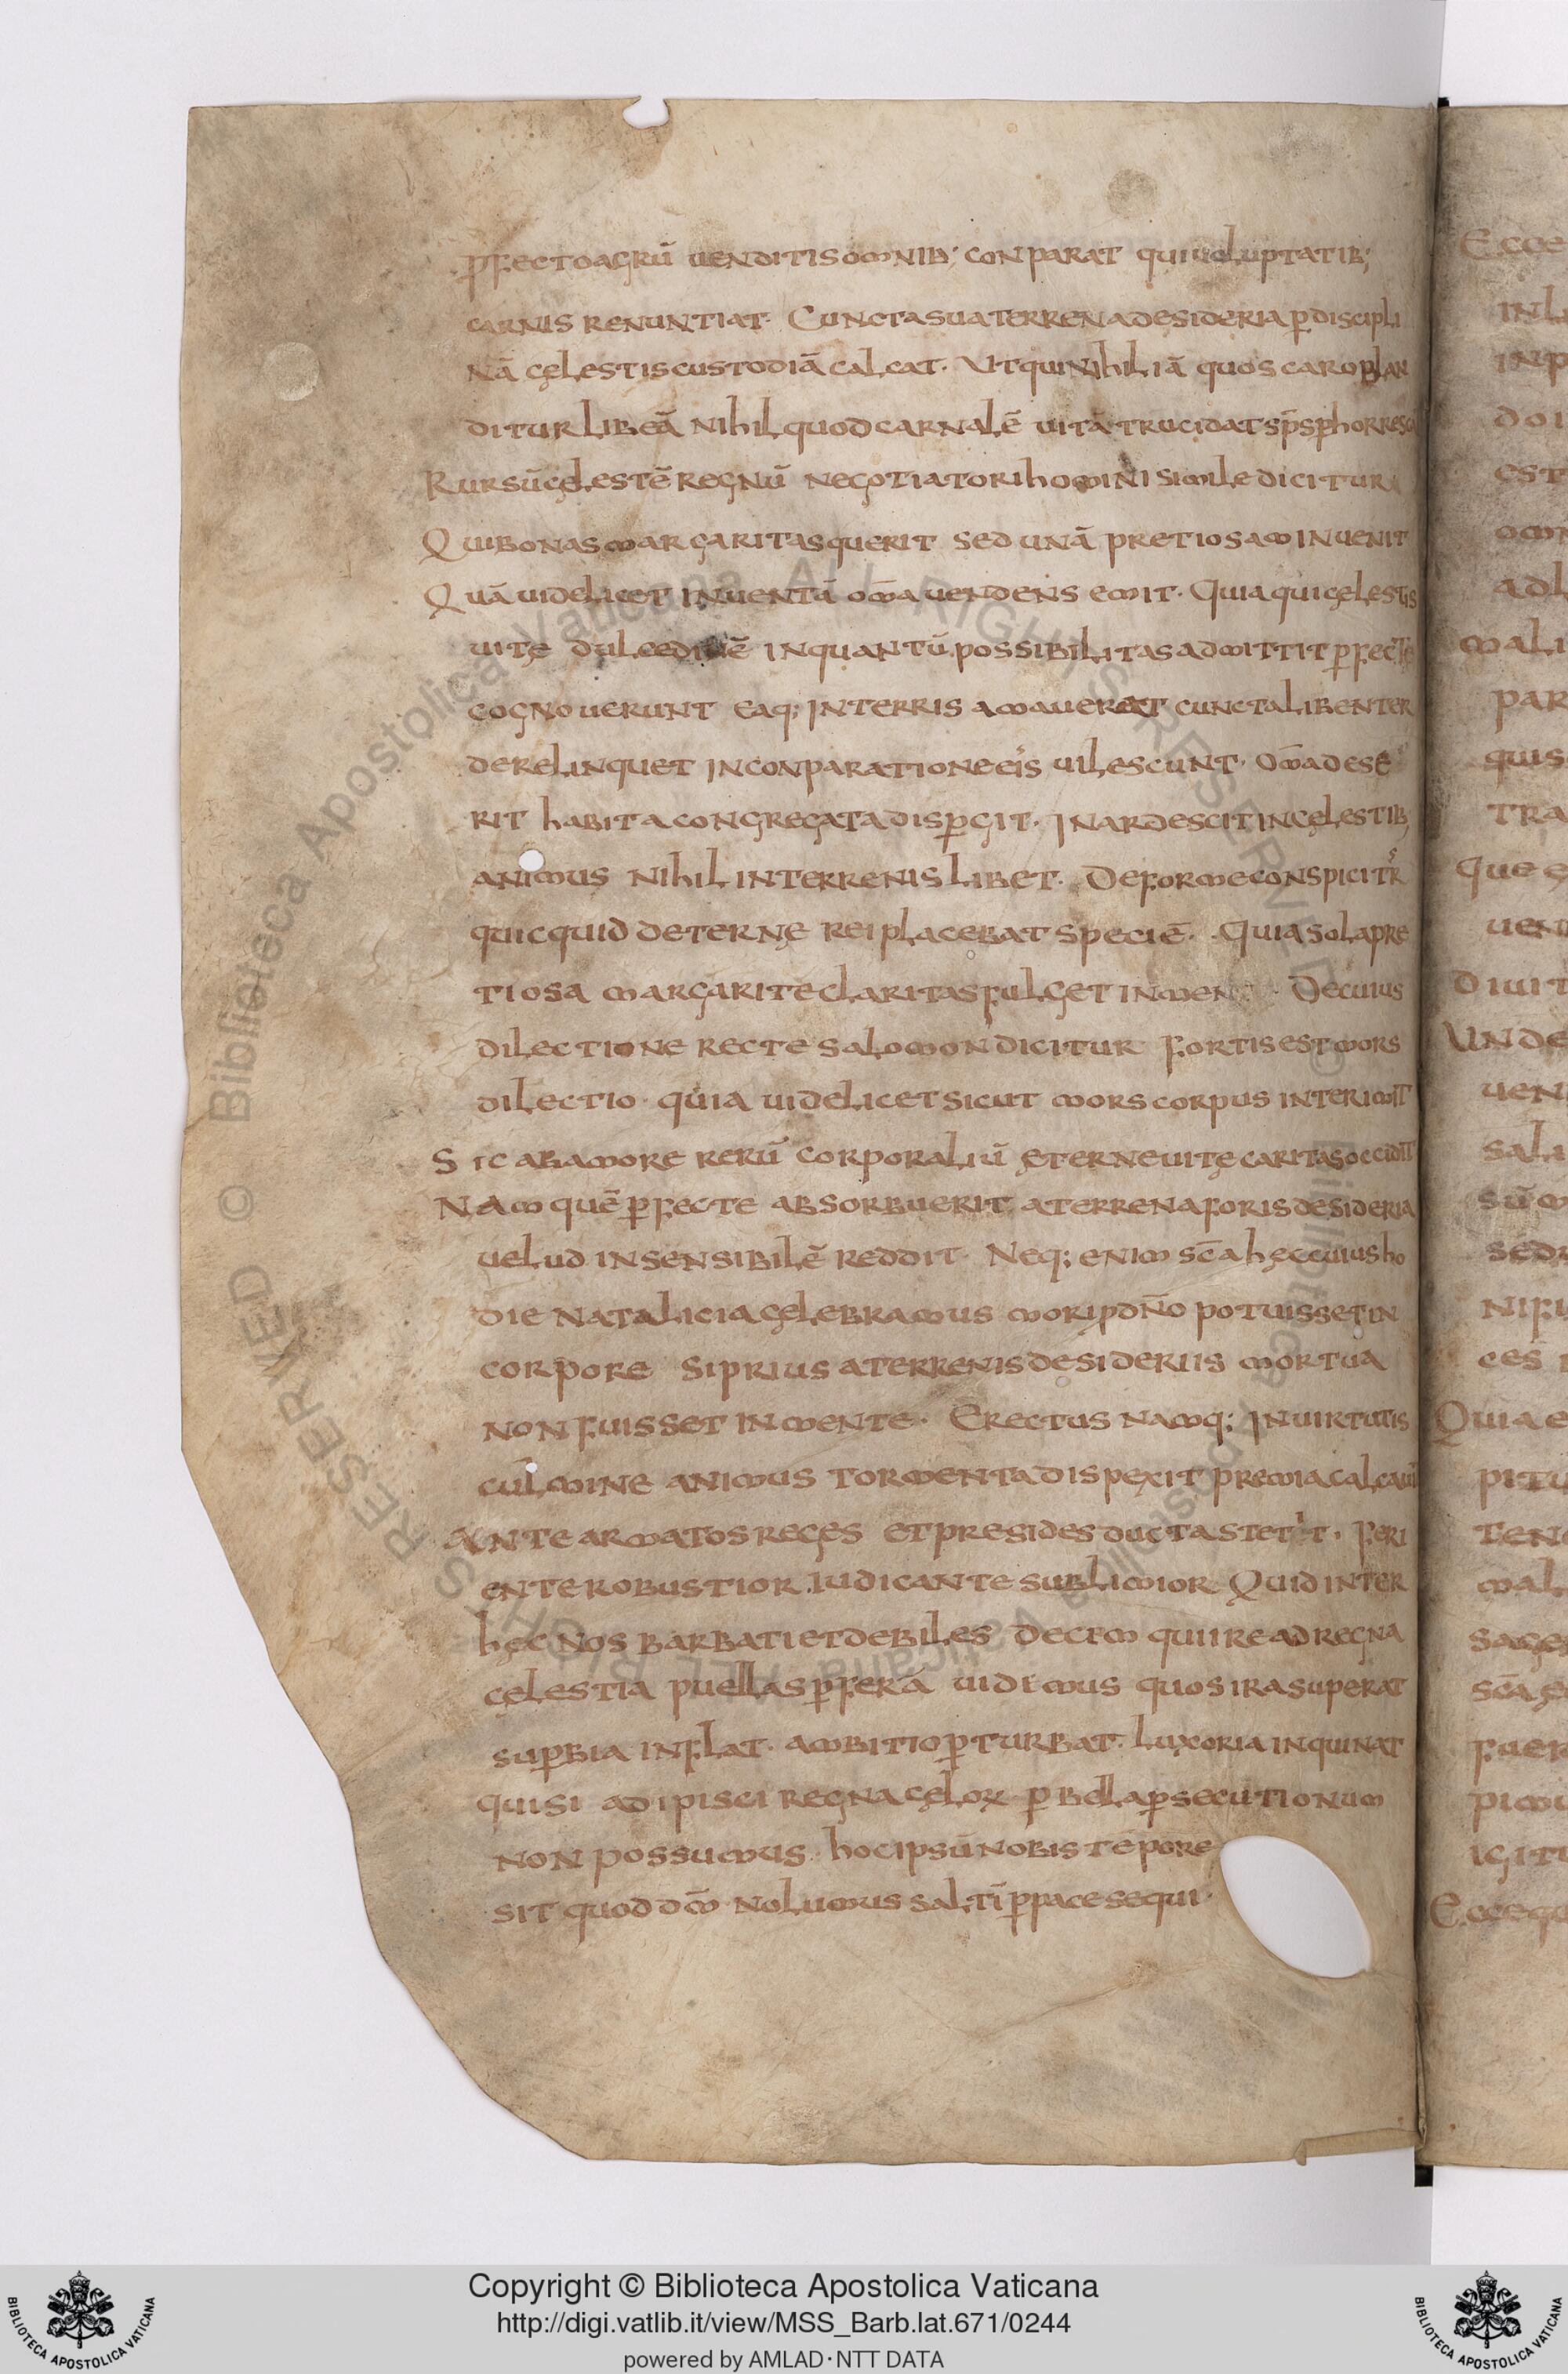 ꝑfecto agrū uenditis omnib; conparat qui uoluptatib;
carnis renuntiat. Cuncta sua terrena desideria ꝑ discipli
nā cęlestis custodiā calcat. Ut qui nihil iā quos caro blan
ditur libeā nihil quod carnalē uitā trucidat sp̄s ꝑhorresca
Rursū cęlestē regnū negotiatori homini simile dicitur
Qui bonas margaritas querit sed unā pretiosam inuenit
Quā uidelicet inuentā om̄a uendens emit. Quia qui cęlestis
uitę dulcedinē inquantū possibilitas admittit ꝑfecte
cognouerunt eaq; in terris amauerat cuncta libenter
derelinquet in conparatione eis uilescunt. om̄a dese
rit habita congregata disꝑgit. Inardescit in cęlestib;
animus nihil in terrenis libet. Deforme conspicitur
quicquid de ternę rei placebat speciē. Quia sola pre
tiosa margarite claritas fulget in men De cuius
dilectione recte salomon dicitur fortis est mors
dilectio. quia uidelicet sicut mors corpus interimit
Sic ab amore rerū corporaliū ęterne uitę caritas occidit
Nam quē ꝑfecte absorbuerit a terrena foris desideria
uelud insensibilē reddit. Neq; enim sc̄a hęc cuius ho
die natalicia cęlebramus mori p dn̄o potuisset in
corpore si prius a terrenis desideriis mortua
non fuisset in mente. Erectus namq; in uirtutis
culmine animus tormenta dispexit premia calcauit
Ante armatos reges et presides ducta stetit. feri
ente robustior iudicante sublimior. Quid inter
hęc nos barbati et debiles decem qui ire ad regna
cęlestia puellas ꝑ ferā uidimus quos ira superat
suꝑbia inflat. ambitio ꝑturbat. luxoria inquinat
qui si adipisci regna cęloꝝ ꝑ bella ꝑsecutionum
non possumus. hoc ipsū nobis tēpore
sit quod dm̄ nolumus saltī ꝑ pace sequi.
Copyright © Biblioteca Apostolica Vaticana
http://digi.vatlib.it/view/MSS_Barb.lat.671/0244
powered by AMLAD·NTT DATA